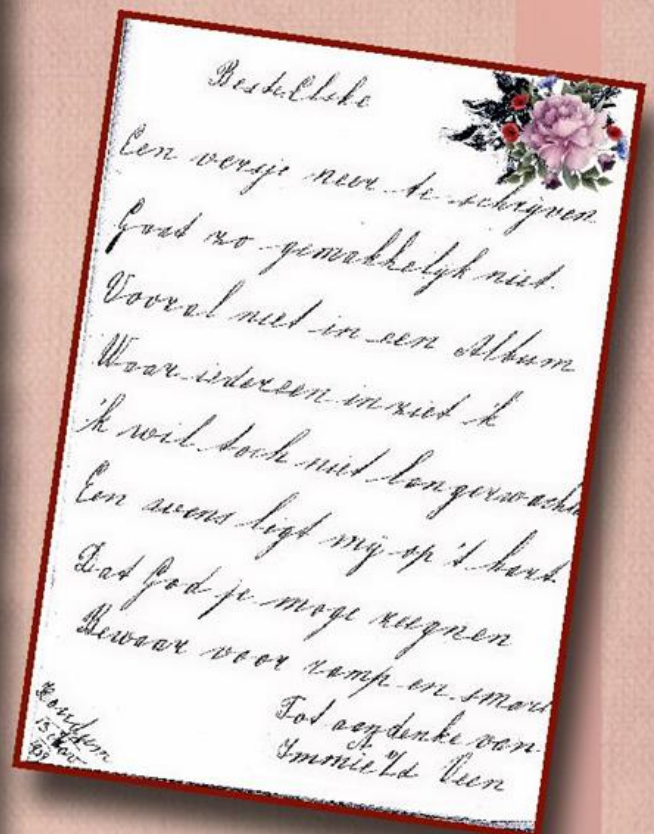 Beste Elske
Een versje neer te schrijven
Gaat zo gemakkelijk niet.
Vooral niet in een Album
Waar iedereen in ziet 'k
'k wil toch niet langer wachte
Een wens ligt mij op 't hart
Dat God je moge zeegnen
Bewaar voor ramp en smart
Tot aandenke van
Immie Veen
Koudum
15